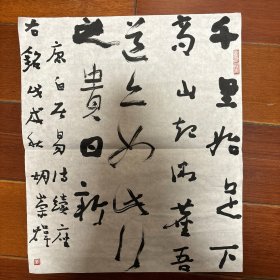 千里始足下
高山起微尘吾
道亦如此行
之贵日新
唐白居易法续座
右铭戊戌秋胡崇炜